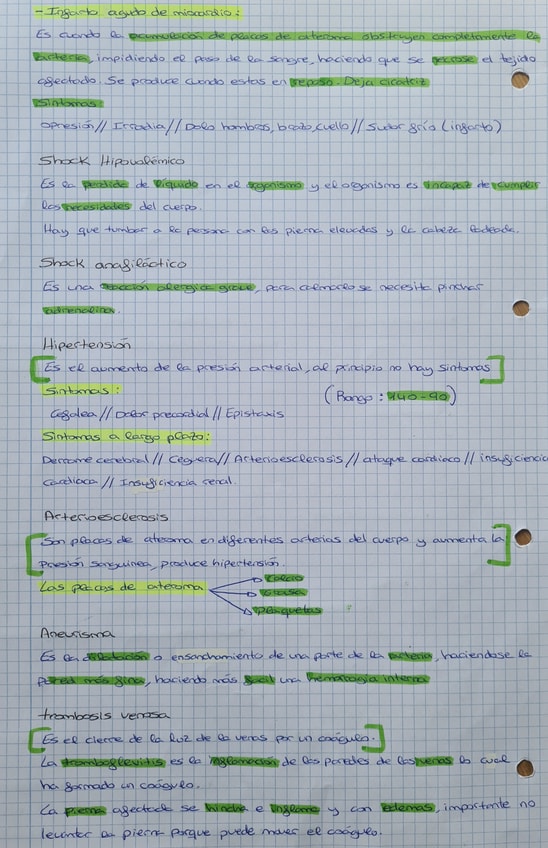 - Infarto agudo de miocardio:
Es cuando la acumulación de placas de ateroma obstruyen completamente la
arteria, impidiendo el paso de la sangre, haciendo que se necrose el tejido
afectado. Se produce cuando estas en reposo. Deja cicatriz
Síntomas
Opresión // Irradia // Dolo hombros, brazo, cuello // Sudor frío (infarto)
Shock Hipovolémico
Es la perdida de líquido en el organismo y el organismo es incapaz de cumplir
las necesidades del cuerpo.
Hay que tumbar a la persona con las pierna elevadas y la cabeza ladeada.
Shock anafiláctico
Es una reacción alergica grave, para calmarlo se necesita pinchar
adrenalina.
Hipertensión
Es el aumento de la presión arterial, al principio no hay síntomas
Síntomas:
(Rango: 140-90)
Cefalea // Dolor precordial // Epistaxis
Síntomas a largo plazo:
Derrame cerebral // Ceguera // Arterioesclerosis // ataque cardiaco // insuficiencia
Cardiaca // Insuficiencia renal.
Arterioesclerosis
Son placas de ateroma en diferentes arterias del cuerpo y aumenta la
presión sanguinea, produce hipertensión
Las placas de ateroma
Calcio
Grasa
Plaquetas
Aneurisma
Es la dilatación o ensanchamiento de una parte de la arteria, haciendose la
pared más fina, haciendo más facil una hemorragia interna
trombosis venosa
Es el cierre de la luz de la venas por un coágulo.
La tromboflevitis es la inflamación de las paredes de las venas lo cual
ha formado un coágulo.
La pierna afectada se hincha e inflama y con edemas, importante no
levantar la pierna porque puede mover el coágulo.